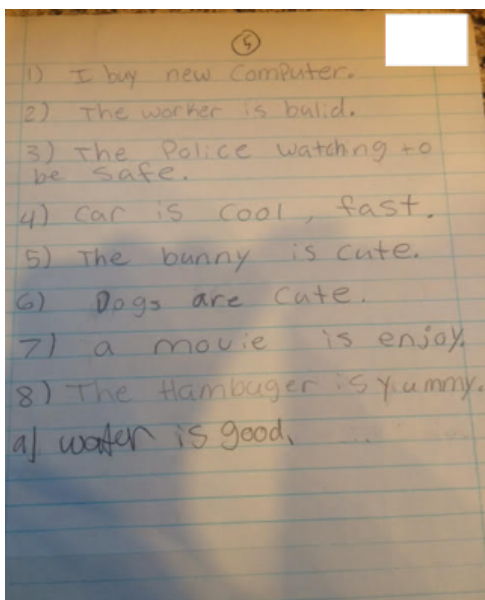 5
1) I buy new Computer.
2) The worker is bulid.
3) The Police watchng to
be safe.
4) Car is cool, fast.
5) The bunny is cute.
6) Dogs are cute.
7) a movie is enjoy.
8) The Hambuger is yummy.
9) water is good.